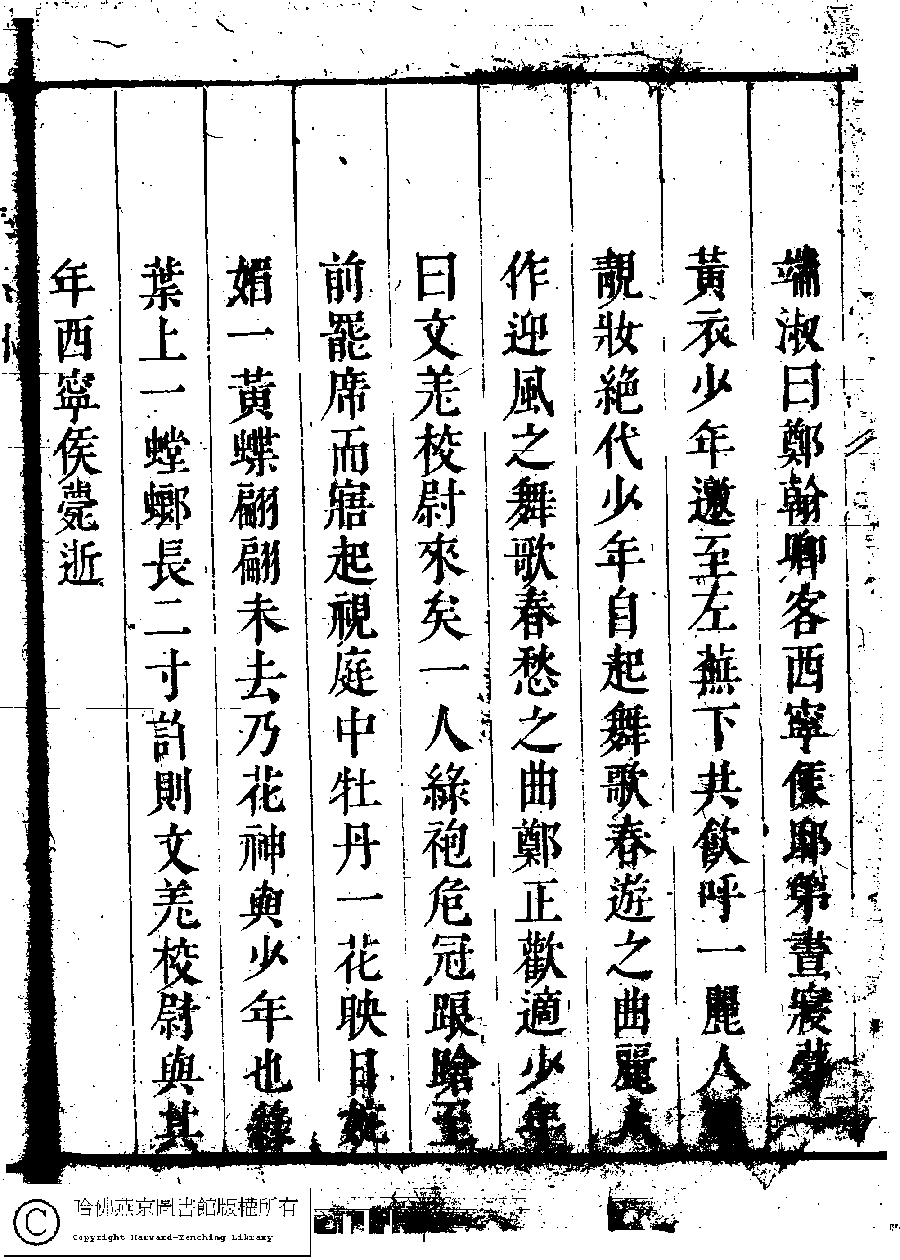 端淑曰鄭翰卿客西寧侯邸第晝寢夢
黃衣少年邀至左蕪下共飲呼一麗人
靚妝絶代少年自起舞歌春遊之曲麗人
作迎風之舞歌春愁之曲鄭正歡適少年
曰文羌校尉來矣一人綠袍危冠踉蹌至
前罷席而寤起視庭中牡丹一花映日
媚一黃蝶翩翩未去乃花神與少年也
葉上一螳螂長二寸許則文羌校尉與其
年西寧侯薨逝
哈佛燕京圖書館版權所有
Copyright Harvard-Yenching Library